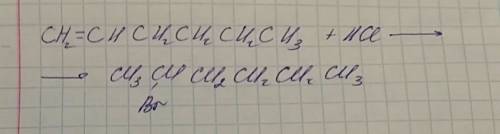 CH₂=CH CH₂CH₂ CH₂CH₃ + HCl ⟶
⟶ CH₃ CH CH₂ CH₂ CH₂ CH₃
Br